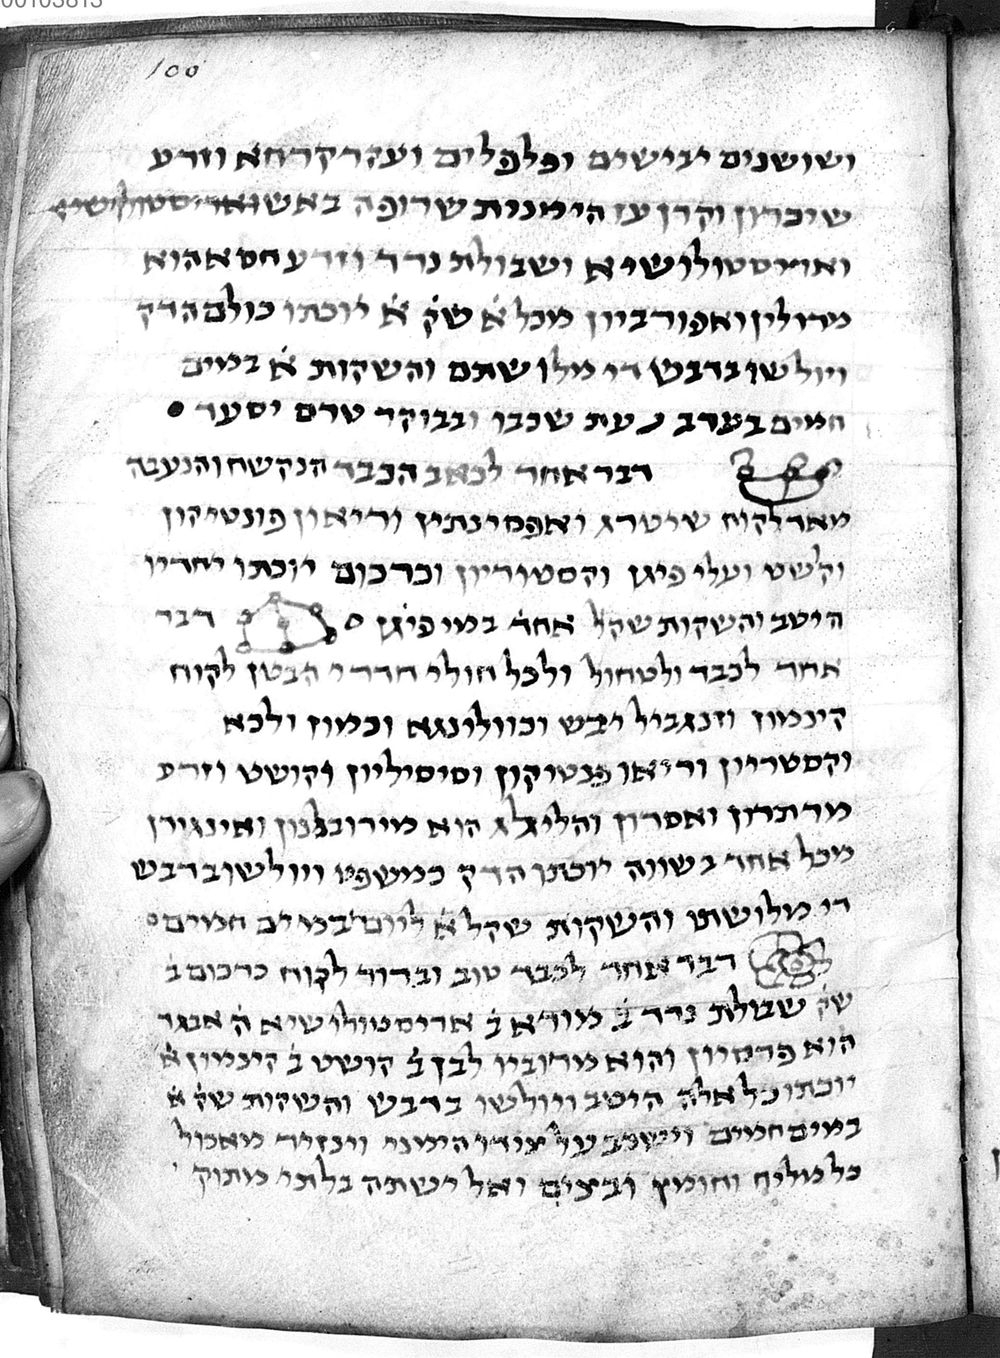 00103813
100
ושושנים יבישים ופלפלים ועקרקרחא וזרע
שיכרון וקרן עז הימנית שרופה באש
ואריסטולושיא ושבולת נרד וזרע חסא הוא
מכל א׳ שק׳ א׳ יוכתו כולם הדק
ויולשו בדבש די מלושתם והשקות א׳ במים
חמים בערב בעת שכבו ובבוקר טרם יסער
דבר אחר לכאב הכבד הנקשח והנעבה
מאד לקוח שיטרג ואפסינתין וריאון פונטיקון
וקשט ועלי פיגן וקסטוריון וכרכום יוכתו יחדיו
היטב והשקות שקל אחד במי פיגן דבר
אחר לכבד ולטחול ולכל חולי חדרי הבטן לקוח
קינמון וזנגביל יבש וכוולינגא וכמון ולכא
וקסטריון וריאו פנטיקון וסיסיליון וקושט וזרע
מרתרון ואסרון והלילג הוא מירובלנון ואינגירן
מכל אחד בשווה יוכתו הדק כמשפט ויולשו בדבש
די מלושתו והשקות שקל א׳ ליום במים חמים
דבר אחר לכבד טוב וברור לקוח כרכום ב׳
שק׳ שבולת נרד ב׳ מורא ב׳ אריסטולושיאה ה׳ אבגר
הוא פרסיון והוא מרוביו לבן ב׳ קושט ב׳ קינמון א׳
יוכתו כל אלה היטב ויולשו בדבש והשקות שק׳ א׳
במים חמים וישכב על צידו הימני וינזיר מאכול
כל מליח וחומץ ובצים ואל ישתה בלתי מתוק